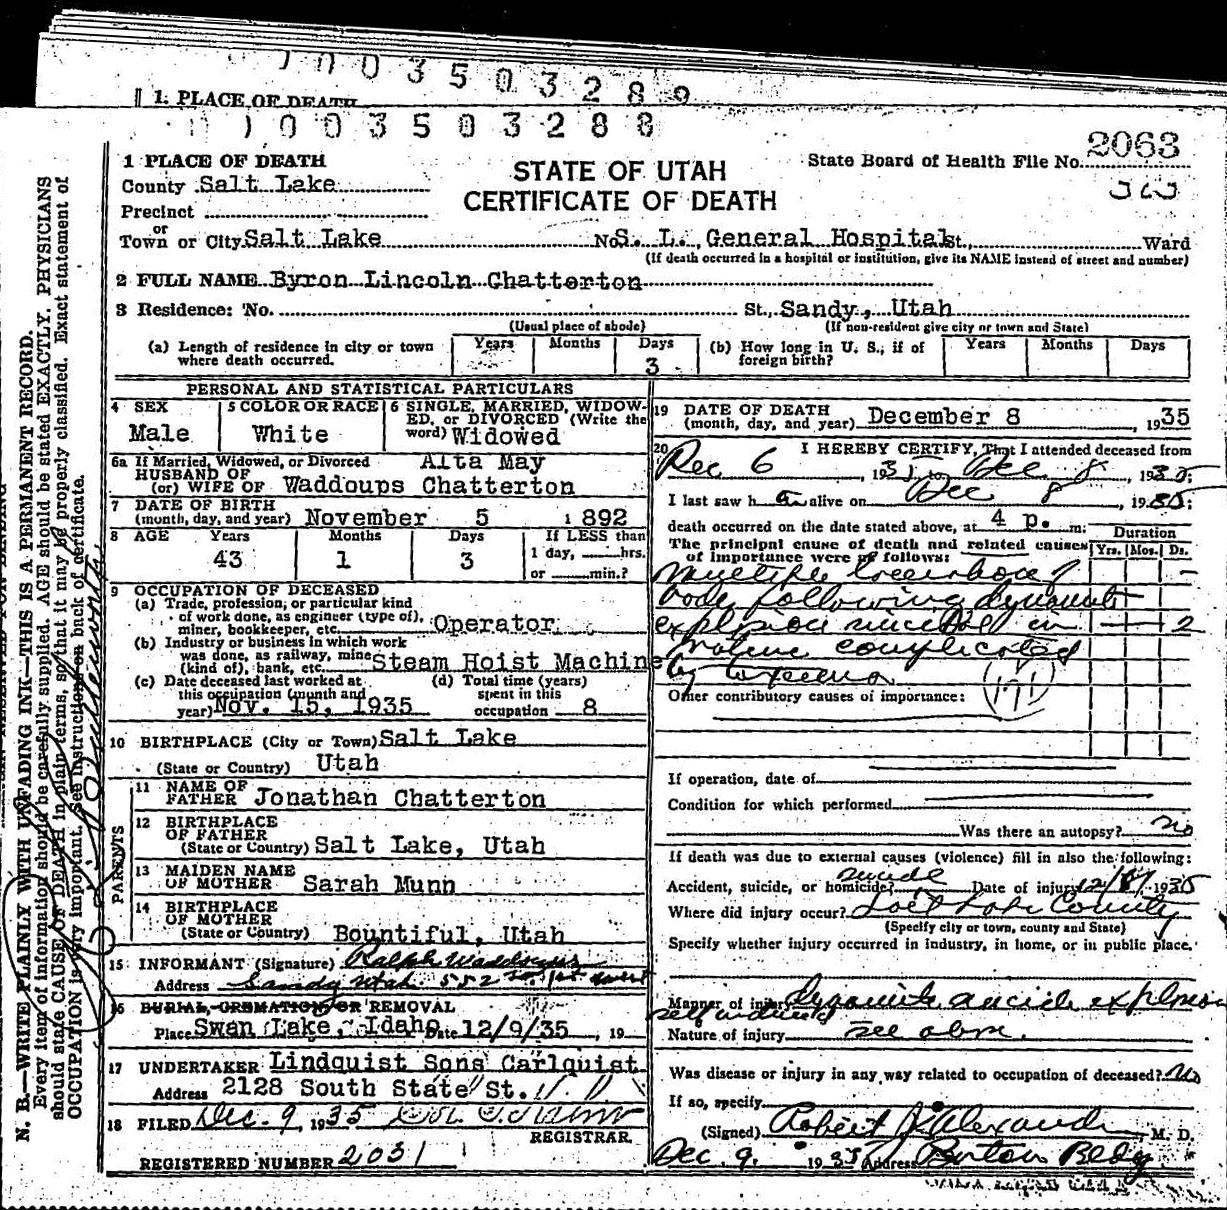 1003503289
1. PLACE OF DEATH
1003503288
2063
1 PLACE OF DEATH
STATE OF UTAH
CERTIFICATE OF DEATH
State Board of Health File No.
County Salt Lake
Precinct
or
Town or City Salt Lake No. S. L. General Hospital St., Ward
(If death occurred in a hospital or institution, give its NAME instead of street and number)
2 FULL NAME Byron Lincoln Chatterton
3 Residence: No. St., Sandy, Utah
(Usual place of abode) (If non-resident give city or town and State)
(a) Length of residence in city or town where death occurred. Years Months Days 3
(b) How long in U. S., if of foreign birth? Years Months Days
PERSONAL AND STATISTICAL PARTICULARS
4 SEX Male
5 COLOR OR RACE White
6 SINGLE, MARRIED, WIDOWED, or DIVORCED (Write the word) Widowed
6a If Married, Widowed, or Divorced Alta May
HUSBAND OF
(or) WIFE OF Waddoups Chatterton
7 DATE OF BIRTH
(month, day, and year) November 5 1892
8 AGE Years 43 Months 1 Days 3 If LESS than 1 day, hrs. or min.?
9 OCCUPATION OF DECEASED
(a) Trade, profession, or particular kind
of work done, as engineer (type of),
miner, bookkeeper, etc. Operator
(b) Industry or business in which work
was done, as railway, mine
(kind of), bank, etc. Steam Hoist Machine
(c) Date deceased last worked at
this occupation (month and
year) Nov. 15, 1935
(d) Total time (years)
spent in this
occupation 8
10 BIRTHPLACE (City or Town) Salt Lake
(State or Country) Utah
PARENTS
11 NAME OF
FATHER Jonathan Chatterton
12 BIRTHPLACE
OF FATHER
(State or Country) Salt Lake, Utah
13 MAIDEN NAME
OF MOTHER Sarah Munn
14 BIRTHPLACE
OF MOTHER
(State or Country) Bountiful, Utah
15 INFORMANT (Signature) Ralph Waddoups
Address Sandy Utah 552 So. 1st West
16 BURIAL, CREMATION OR REMOVAL
Place Swan Lake, Idaho Date 12/9/35, 19
17 UNDERTAKER Lindquist Sons Carlquist
Address 2128 South State St.
18 FILED Dec. 9, 1935
REGISTRAR
REGISTERED NUMBER 2031
19 DATE OF DEATH
(month, day, and year) December 8, 1935
20 I HEREBY CERTIFY, That I attended deceased from
Dec 6, 1935 to Dec 8, 1935;
I last saw h alive on Dec 8, 1935;
death occurred on the date stated above, at 4 p. m:
The principal cause of death and related causes
of importance were as follows:
Duration
Yrs. Mos. Ds.
Multiple
body following dynamite
explosion suicidal in 2
nature complicated
by
171
Other contributory causes of importance:
If operation, date of
Condition for which performed
Was there an autopsy? no
If death was due to external causes (violence) fill in also the following:
Accident, suicide, or homicide? suicide Date of injury 12/ 1935
Where did injury occur? Salt Lake County
(Specify city or town, county and State)
Specify whether injury occurred in industry, in home, or in public place.
Manner of injury dynamite suicide explosion
self induced
Nature of injury see above.
Was disease or injury in any way related to occupation of deceased? No
If so, specify
(Signed) Robert J. Alexander M. D.
Dec. 9. 1935 Address Boston Bldg
N. B.—WRITE PLAINLY WITH UNFADING INK—THIS IS A PERMANENT RECORD.
Every item of information should be carefully supplied. AGE should be stated EXACTLY. PHYSICIANS
should state CAUSE OF DEATH in plain terms, so that it may be properly classified. Exact statement of
OCCUPATION is very important. See instructions on back of certificate.